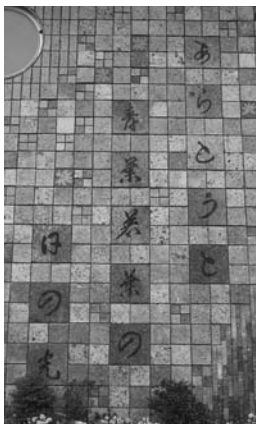 あらとうと
青葉若葉の
日の光